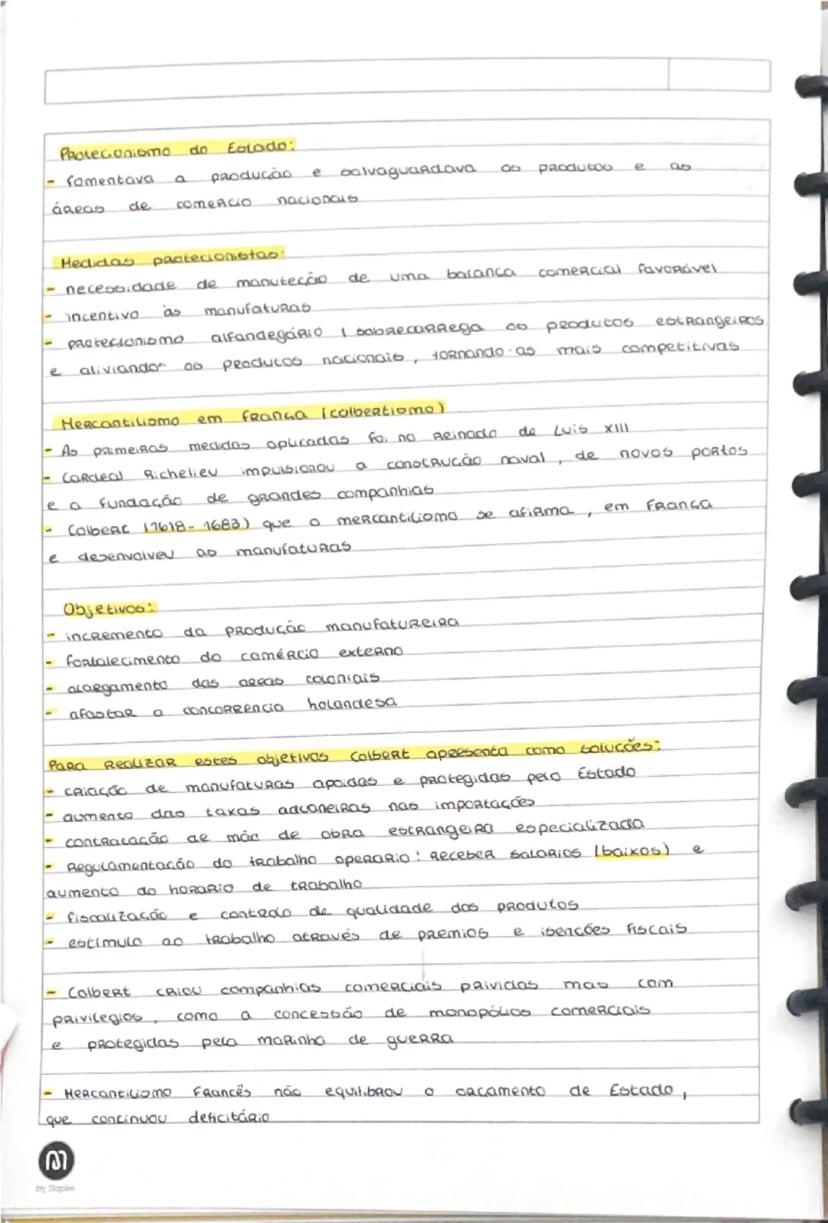 Protecionismo do Estado:
- fomentava a produção e salvaguardava os produtos e as
áreas de comercio nacionais
Medidas protecionistas:
- necessidade de manuteção de uma balança comercial favorável
- incentivo às manufaturas
- protecionismo alfandegário ( sobrecarrega os produtos estrangeiros
e aliviando os produtos nacionais, tornando-as mais competitivas
Mercantilismo em França (colbertismo)
- As primeiras medidas aplicadas foi no reinado de Luís XIII
- Cardeal Richelieu impulsionou a construção naval, de novos portos
e a fundação de grandes companhias
- Colbert (1618-1683) que o mercantilismo se afirma, em França
e desenvolveu as manufaturas
Objetivos:
- incremento da produção manufatureira
- fortalecimento do comércio externo
- alargamento das areas coloniais
- afastar a concorrencia holandesa
Para realizar estes objetivos Colbert apresenta como soluções:
- criação de manufaturas apoidas e protegidas pelo Estado
- aumento das taxas adconeiras nas importações
- contratação de mão de obra estrangeira especializada
- Regulamentação do trabalho operario: receber salarios (baixos) e
aumento do horario de trabalho
- fiscalização e controlo de qualidade dos produtos
- estímulo ao trabalho através de premios e isenções fiscais
- Colbert criou companhias comerciais prividas mas com
privilegios, como a concessão de monopólios comerciais
e protegidas pela marinha de guerra
- Mercantilismo Francês não equilibrou o orcamento de Estado,
que continuou deficitário
by Staples